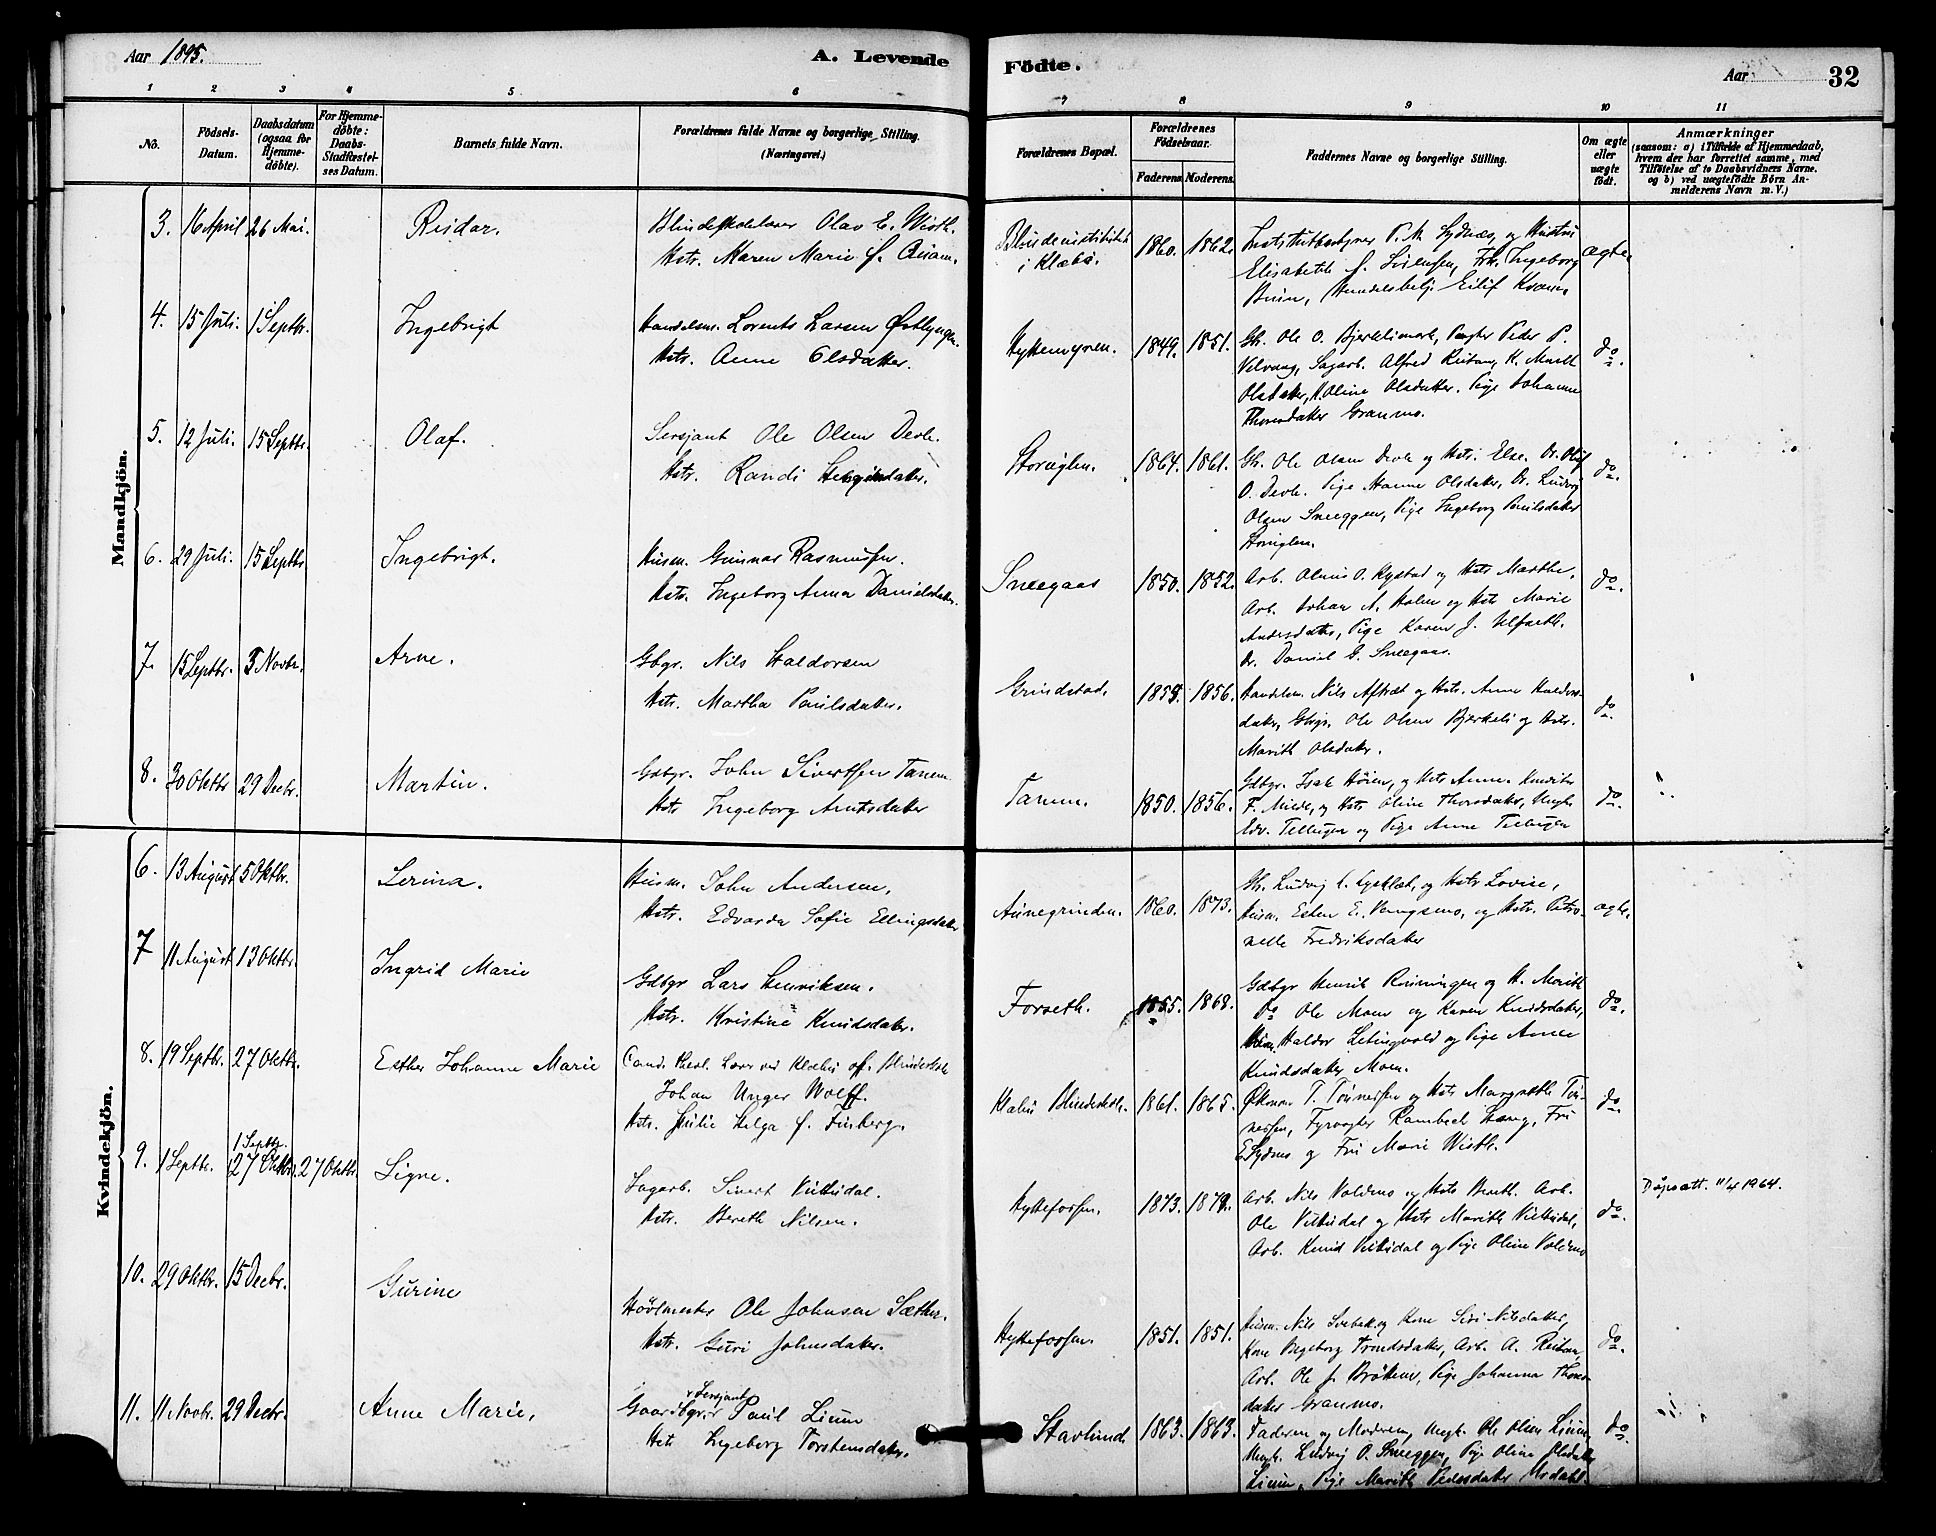 Aar 1895.
A. Levende
Födte.
Aar
32
1 2 3 4 5 6 7 8 9 10 11
No.
Födsels-Datum.
Daabsdatum (ogsaa for Hjemmedöbte).
For Hjemmedöbte: Daabs-Stadfæstelses Datum.
Barnets fulde Navn.
Forældrenes fulde Navne og borgerlige Stilling. (Næringsvei.)
Forældrenes Bopæl.
Forældrenes Födselsaar.
Faderens. Moderens.
Faddernes Navne og borgerlige Stilling.
Om ægte eller uægte født.
Anmærkninger
(saasom: a) i Tilfælde af Hjemmedaab, hvem der har forrettet samme, med Tilföielse af to Daabsvidners Navne. og b) ved uægtefödte Börn Anmelderens Navn m. V.)
Mandkjön.
3. 16 April 26 Mai. Reidar. Blindeskolelærer Olav E. Wisth.
Hstr. Maren Marie f. Qvam.
i Klæbu. 1860. 1862. P. M. Sydnæs, og Hustru
Elisabeth f. Sörensen, Frk. Ingeborg
Eilif Kvam. ægte.
4. 15 Juli. 1 Septbr. Ingebrigt
Handelsm. Lorents Larsen Østlyngen.
Hstr. Anne Olsdatter.
Hyttemyren. 1849. 1851. Gb. Ole O. Bjerklimark, Peder P.
Sagarb. Alfred Reitan, K. Marit
Olsdatter, K. Oline Olsdatter. Pige Johanna
Thoresdatter Granmo. do.
5. 12 Juli. 15 Septbr. Olaf.
Sersjant Ole Olsen Devle.
Hstr. Randi
Storuglen. 1864. 1861. Gb. Ole Olsen Devle og Hstr. Else. Dr. Oluf
O. Devle. Pige Hanna Olsdatter, Dr. Ludvig
Olsen Sneeggen, Pige Ingeborg Paulsdatter
Storuglen. do.
6. 29 Juli. 15 Septbr Ingebrigt.
Husm. Gunnar Rasmussen.
Hstr. Ingeborg Anna Danielsdatter.
Sneegaas 1850. 1852. Arb. Olaus O. Rystad og Hstr Marthe.
Arb. Johan A. Holm og Hstr Marie
Andersdatter, Pige Karen J. Ulseth.
Dr. Daniel G. Sneegaas. do.
7. 15 Septbr. 3 Novbr. Arne.
Gbgr. Nils Haldorsen
Hstr. Martha Paulsdatter.
Grindstad. 1856. Handelsm. Nils Aftret og Hstr. Anne Haldors-
datter, Gbgr. Ole Olsen Bjerkeli og Hstr.
Marith Olsdatter. do.
8. 30 Oktbr 29 Decbr. Martin.
Gdbgr. John Sivertsen Tanem
Hstr Ingeborg Arntsdatter
Tanem. 1850. 1856. Gdbgr. Isak Höien, og Hstr Anne.
F. Milde, og Hstr Oline Thorsdatter, Ungk.
Edv. Tellugen og Pige Anne Tellugen do.
Kvindekjön.
6. 13 August 5 Oktbr. Serina.
Husm. John Andersen.
Hstr. Edvarda Sofie Ellingsdatter
Aunegrinden. 1860. 1873. Gb. Ludvig og Hstr Lovise,
Husm. Esten E. Vangsmo, og Hstr. Petro-
nelle Fredriksdatter ægte.
7 11 August 13 Oktbr. Ingrid Marie
Gdbgr Lars Henriksen.
Hstr. Kristine Knudsdatter.
Forseth. 1855. 1868. Gdbgr Henrik Rönningen og H. Marith
Do Ole Moen og Karen Knudsdatter,
Husm. Haldor Letingvold og Pige Anne
Knudsdatter Moen. do.
8. 19 Septbr. 27 Oktbr. Esther Johanne Marie
Cand. theol. Lærer ved Klæbu off. Blindeskole
Johan Unger Wolff.
Hstr. Julie Helga f. Finberg.
Klæbu Blindeskole. 1861. 1865. Økonom T. Tönnessen og Hstr Margrethe Tön-
nessen, Fyrvogter Rambech Stang, Fru
E. Sydnæs og Fru Marie Wisth. do.
9. 1 Septbr. 1 Septbr. 27 Oktbr. 27 Oktbr. Signe.
Sagarb. Sivert Vuttudal.
Hstr. Bereth Nilsen.
Hyttefossen. 1873. 1872. Arb. Nils Voldmo og Hstr Bereth. Arb.
Ole Vuttudal og Hstr Marith Vuttudal,
Arb. Knud Vuttudal og Pige Oline Voldmo do.
Dåpsatt. 11/4 1964.
10. 29 Oktbr. 15 Decbr. Gurine
Hövlmester Ole Johnsen Sæther.
Hstr. Guri Johnsdatter.
Hyttefossen. 1851. 1851. Husm. Nils Svebak og Kone Siri Nilsdatter,
Kone Ingeborg Trondsdatter, Arb. A. Reitan,
Arb. Ole J. Bröttem, Pige Johanna Thores-
datter Granmo. do.
11. 11 Novbr. 29 Decbr. Anne Marie.
Gaardbgr. & Sersjant Paul Lium
Hstr Ingeborg Torstensdatter.
Stavlund 1863. 1863. Faderen og Moderen, Ungk. Ole Olsen Lium,
Ungk. Ludvig O. Sneeggen, Pige Oline Olsdatter
Lium, Pige Marith Pedersdatter do.